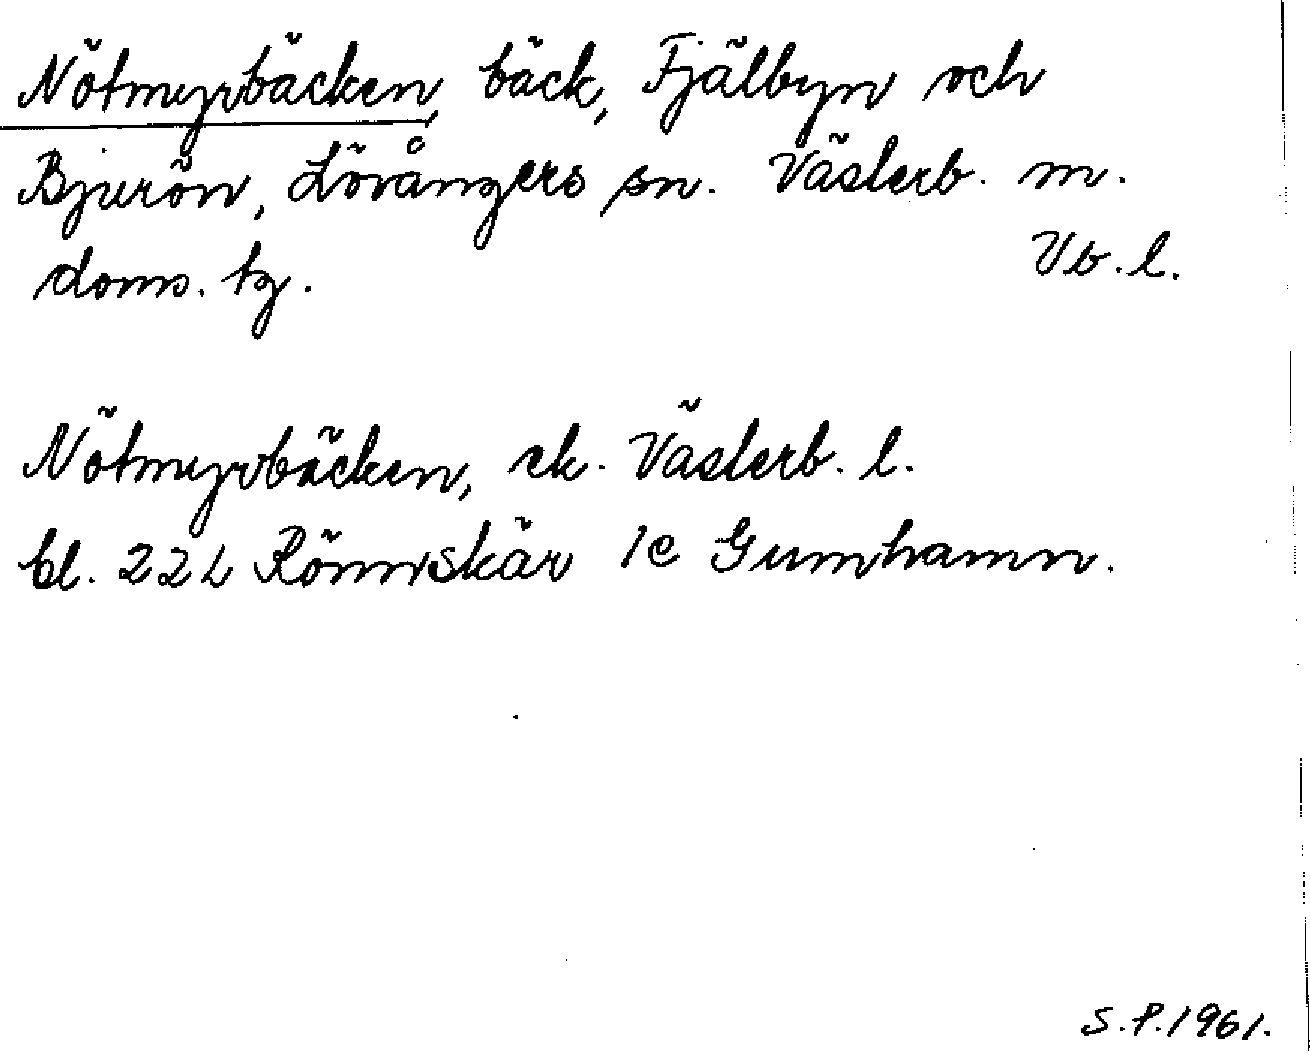 Nötmyrbäcken, bäck, Fjälbyn och
Bjurön, Lövångers sn. Västerb. m.
doms. tg. Vb. l.
Nötmyrbäcken, ek. Västerb. l.
bl. 22 L Rönnskär 1c Gumhamn.
S.P. 1961.